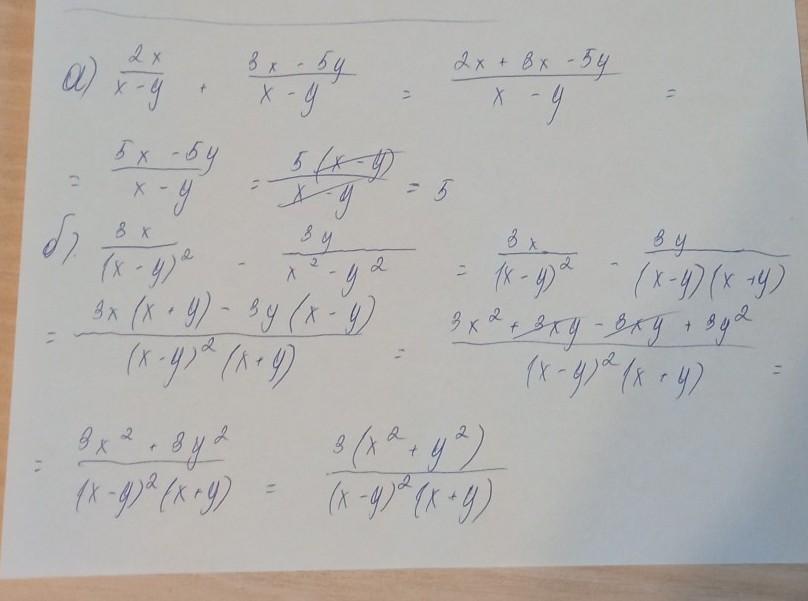 а) 2x/(x-y) + (3x-5y)/(x-y) = (2x+3x-5y)/(x-y) =
= (5x-5y)/(x-y) = 5(x-y)/(x-y) = 5
б). 3x/(x-y)² - 3y/(x²-y²) = 3x/(x-y)² - 3y/((x-y)(x+y))
= (3x(x+y)-3y(x-y))/((x-y)²(x+y)) = (3x²+3xy-3xy+3y²)/((x-y)²(x+y)) =
= (3x²+3y²)/((x-y)²(x+y)) = 3(x²+y²)/((x-y)²(x+y))